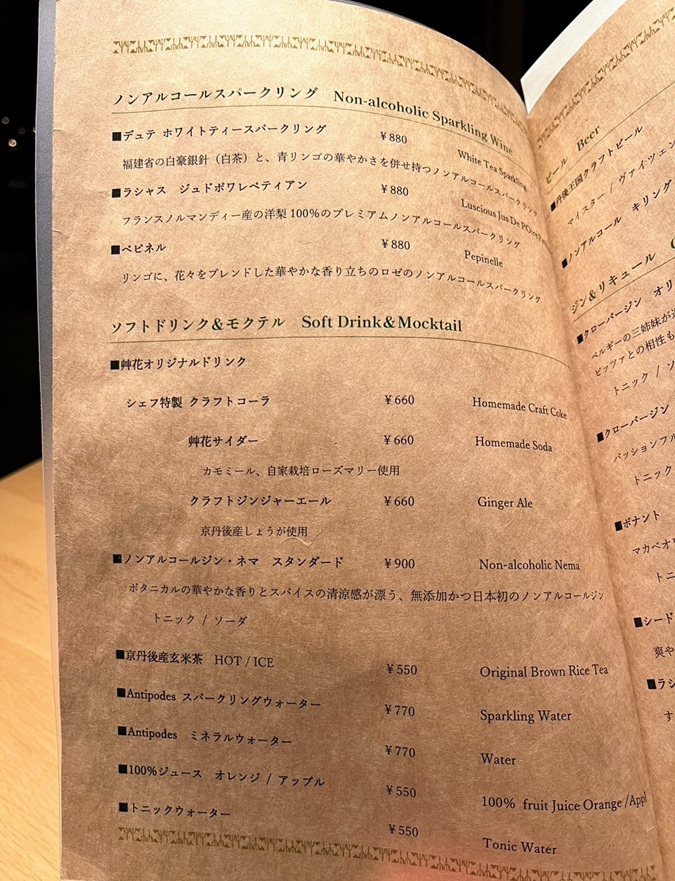 ノンアルコールスパークリング Non-alcoholic Sparkling Wine
■デュテ ホワイトティースパークリング ¥880 White Tea Sparkling
福建省の白豪銀針（白茶）と、青リンゴの華やかさを併せ持つノンアルコールスパークリング
■ラシャス ジュドポワレペティアン ¥880 Luscious Jus De
フランスノルマンディー産の洋梨100%のプレミアムノンアルコールスパークリング
■ペピネル ¥880 Pepinelle
リンゴに、花々をブレンドした華やかな香り立ちのロゼのノンアルコールスパークリング
ソフトドリンク&モクテル Soft Drink&Mocktail
■艸花オリジナルドリンク
シェフ特製 クラフトコーラ ¥660 Homemade Craft Coke
艸花サイダー ¥660 Homemade Soda
カモミール、自家栽培ローズマリー使用
クラフトジンジャーエール ¥660 Ginger Ale
京丹後産しょうが使用
■ノンアルコールジン・ネマ スタンダード ¥900 Non-alcoholic Nema
ボタニカルの華やかな香りとスパイスの清涼感が漂う、無添加かつ日本初のノンアルコールジン
トニック / ソーダ
■京丹後産玄米茶 HOT / ICE ¥550 Original Brown Rice Tea
■Antipodes スパークリングウォーター ¥770 Sparkling Water
■Antipodes ミネラルウォーター ¥770 Water
■100%ジュース オレンジ / アップル ¥550 100% fruit Juice Orange /Appl
■トニックウォーター ¥550 Tonic Water
ビール Beer
■丹後王国クラフトビール
マイスター / ヴァイツェン
■ノンアルコール キリング
ジン&リキュール
■クローバージン オリ
ベルギーの三姉妹が
ピッツァとの相性も
トニック / ソ
■クローバージン
パッションフル
トニック
■ボナント
マカベオ
トニ
■シード
爽や
■ラシ
す